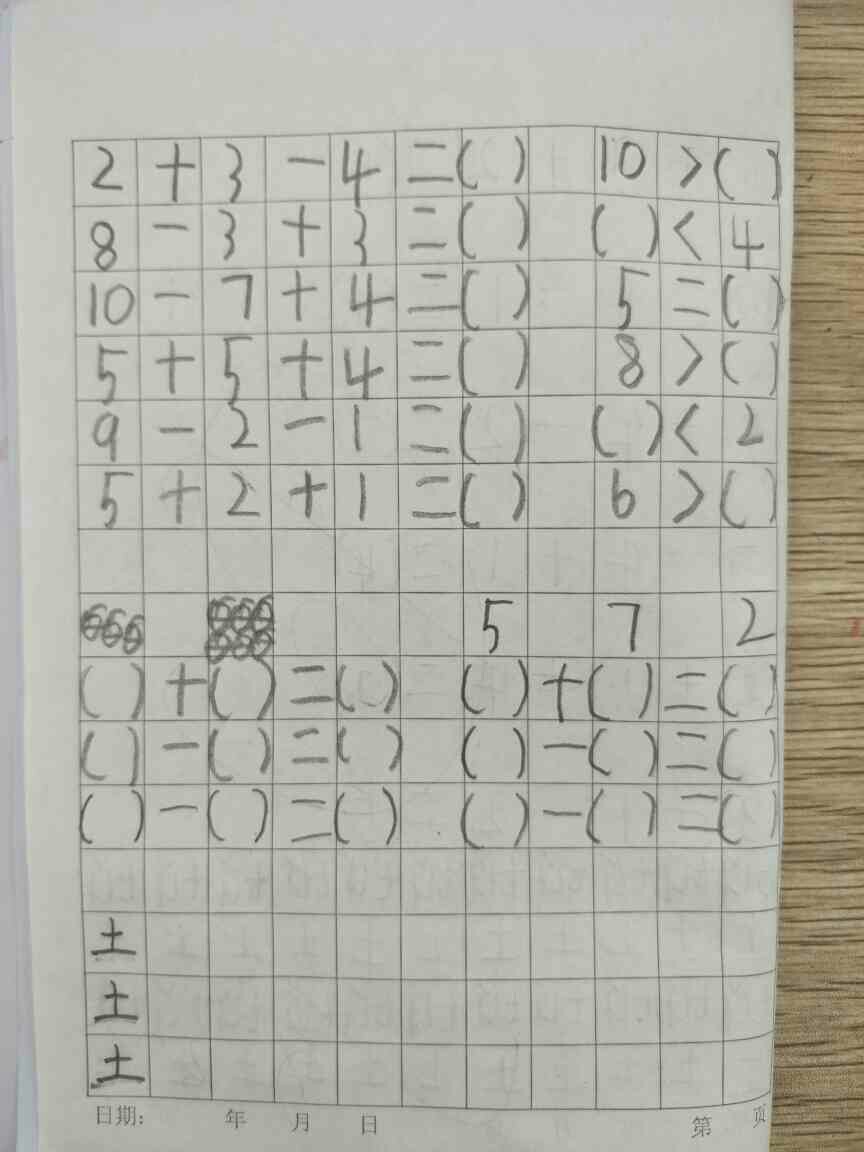 2 + 3 - 4 = ( ) 10 > ( )
8 - 3 + 3 = ( ) ( ) < 4
10 - 7 + 4 = ( ) 5 = ( )
5 + 5 + 4 = ( ) 8 > ( )
9 - 2 - 1 = ( ) ( ) < 2
5 + 2 + 1 = ( ) 6 > ( )
5 7 2
( ) + ( ) = ( ) ( ) + ( ) = ( )
( ) - ( ) = ( ) ( ) - ( ) = ( )
( ) - ( ) = ( ) ( ) - ( ) = ( )
土
土
土
日期: 年 月 日 第 页